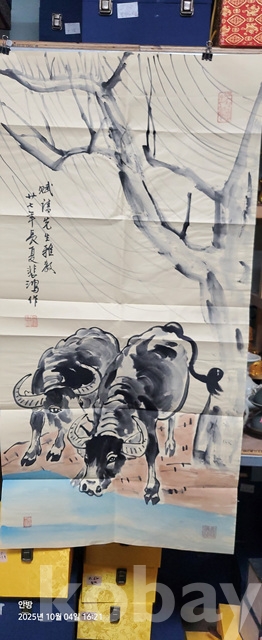 斌靖先生雅教
廿七年長夏悲鴻作
안방
2025년 10월 04일 16:21
kobay